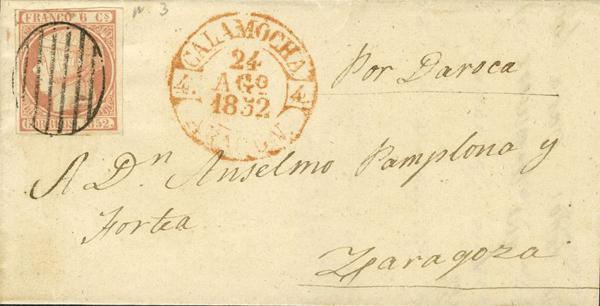 n. 3
FRANCO 6 Cs
CORREOS 1852.
CALAMOCHA
24
AGO
1852
4 4
ARAGON
Por Daroca
A Dn. Anselmo Pamplona y
Fortea
Zaragoza